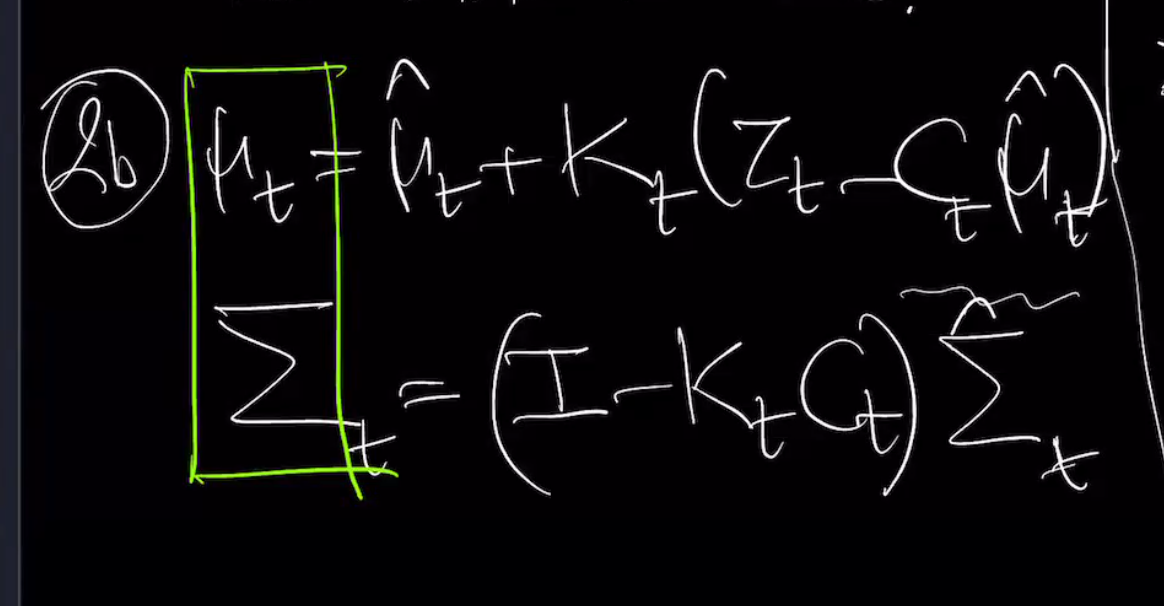 2b μ_t = μ̂_t + K_t (z_t - C_t μ̂_t)
Σ_t = (I - K_t C_t) Σ̂_t